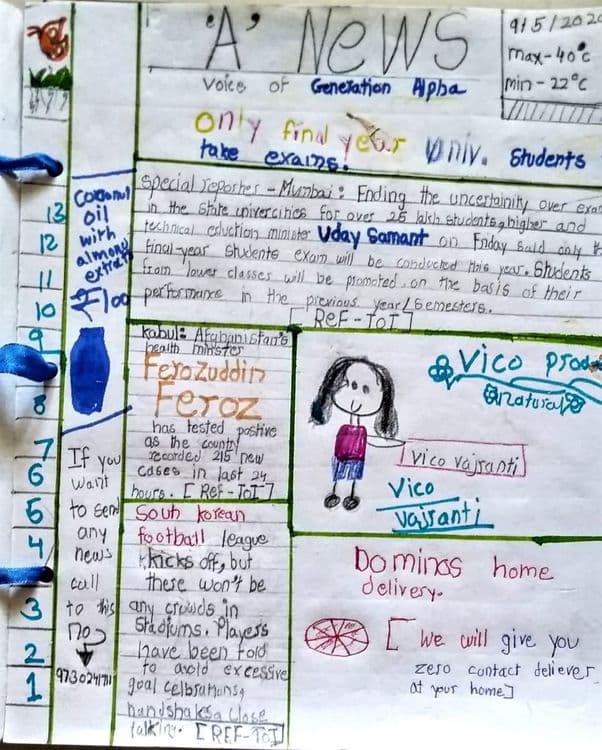 'A' News
Voice of Generation Alpha
9/5/2020
max-40°c
min-22°c
Only final year Univ. Students
take exams!
Special reporter - Mumbai: Ending the uncertainity over exa
in the State univercities for over 25 lakh students, higher and
technical eduction minister Uday Samant on Friday said only th
final-year students exam will be conducted this year. Students
from lower classes will be promoted on the basis of their
performance in the previous year/semesters.
[ReF-ToI]
Coconut
oil
with
almond
extract
₹100
13
12
11
10
9
8
7
6
5
4
3
2
1
If you
want
to send
any
news
call
to this
no
kabul: Afghanistan's
health minister
Ferozuddin
Feroz
has tested positive
as the country
recorded 215 new
cases in last 24
hours. [Ref-ToI]
South korean
football league
kicks off, but
there won't be
any crowds in
Stadiums. Players
have been told
to avoid excessive
goal celbrations,
handshakes & close
talking. [REF-ToI]
Vico Prod
natural
Vico Vajsanti
Vico
Vajsanti
Dominos home
delivery.
[We will give you
zero contact deliever
at your home]